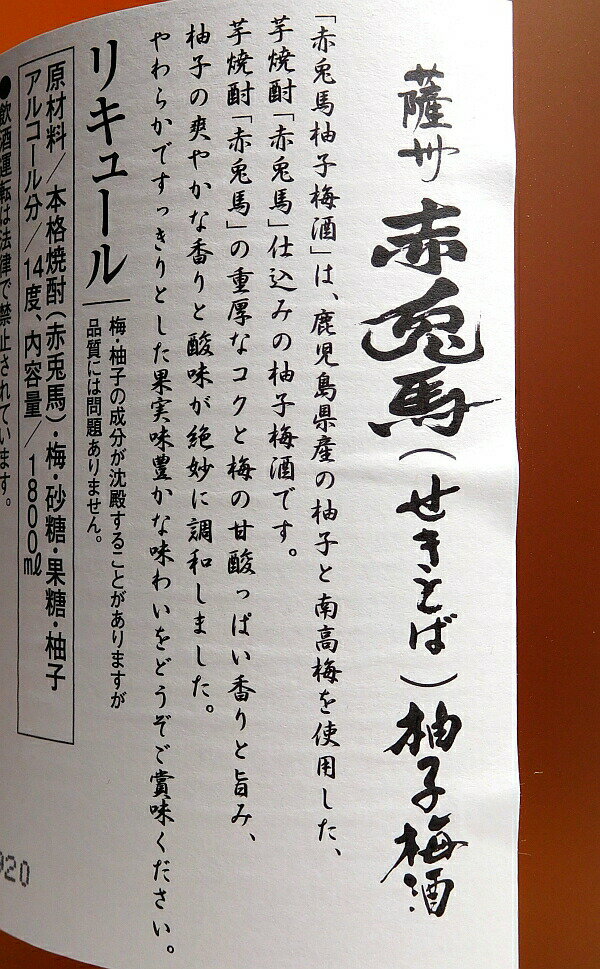 薩州 赤兎馬(せきとば)柚子梅酒
「赤兎馬柚子梅酒」は、鹿児島県産の柚子と南高梅を使用した、
芋焼酎「赤兎馬」仕込みの柚子梅酒です。
芋焼酎「赤兎馬」の重厚なコクと梅の甘酸っぱい香りと旨み、
柚子の爽やかな香りと酸味が絶妙に調和しました。
やわらかですっきりとした果実味豊かな味わいをどうぞご賞味ください。
リキュール
梅・柚子の成分が沈殿することがありますが
品質には問題ありません。
原材料/本格焼酎(赤兎馬)・梅・砂糖・果糖・柚子
アルコール分/14度、内容量/1800ml
●飲酒運転は法律で禁止されています。
920